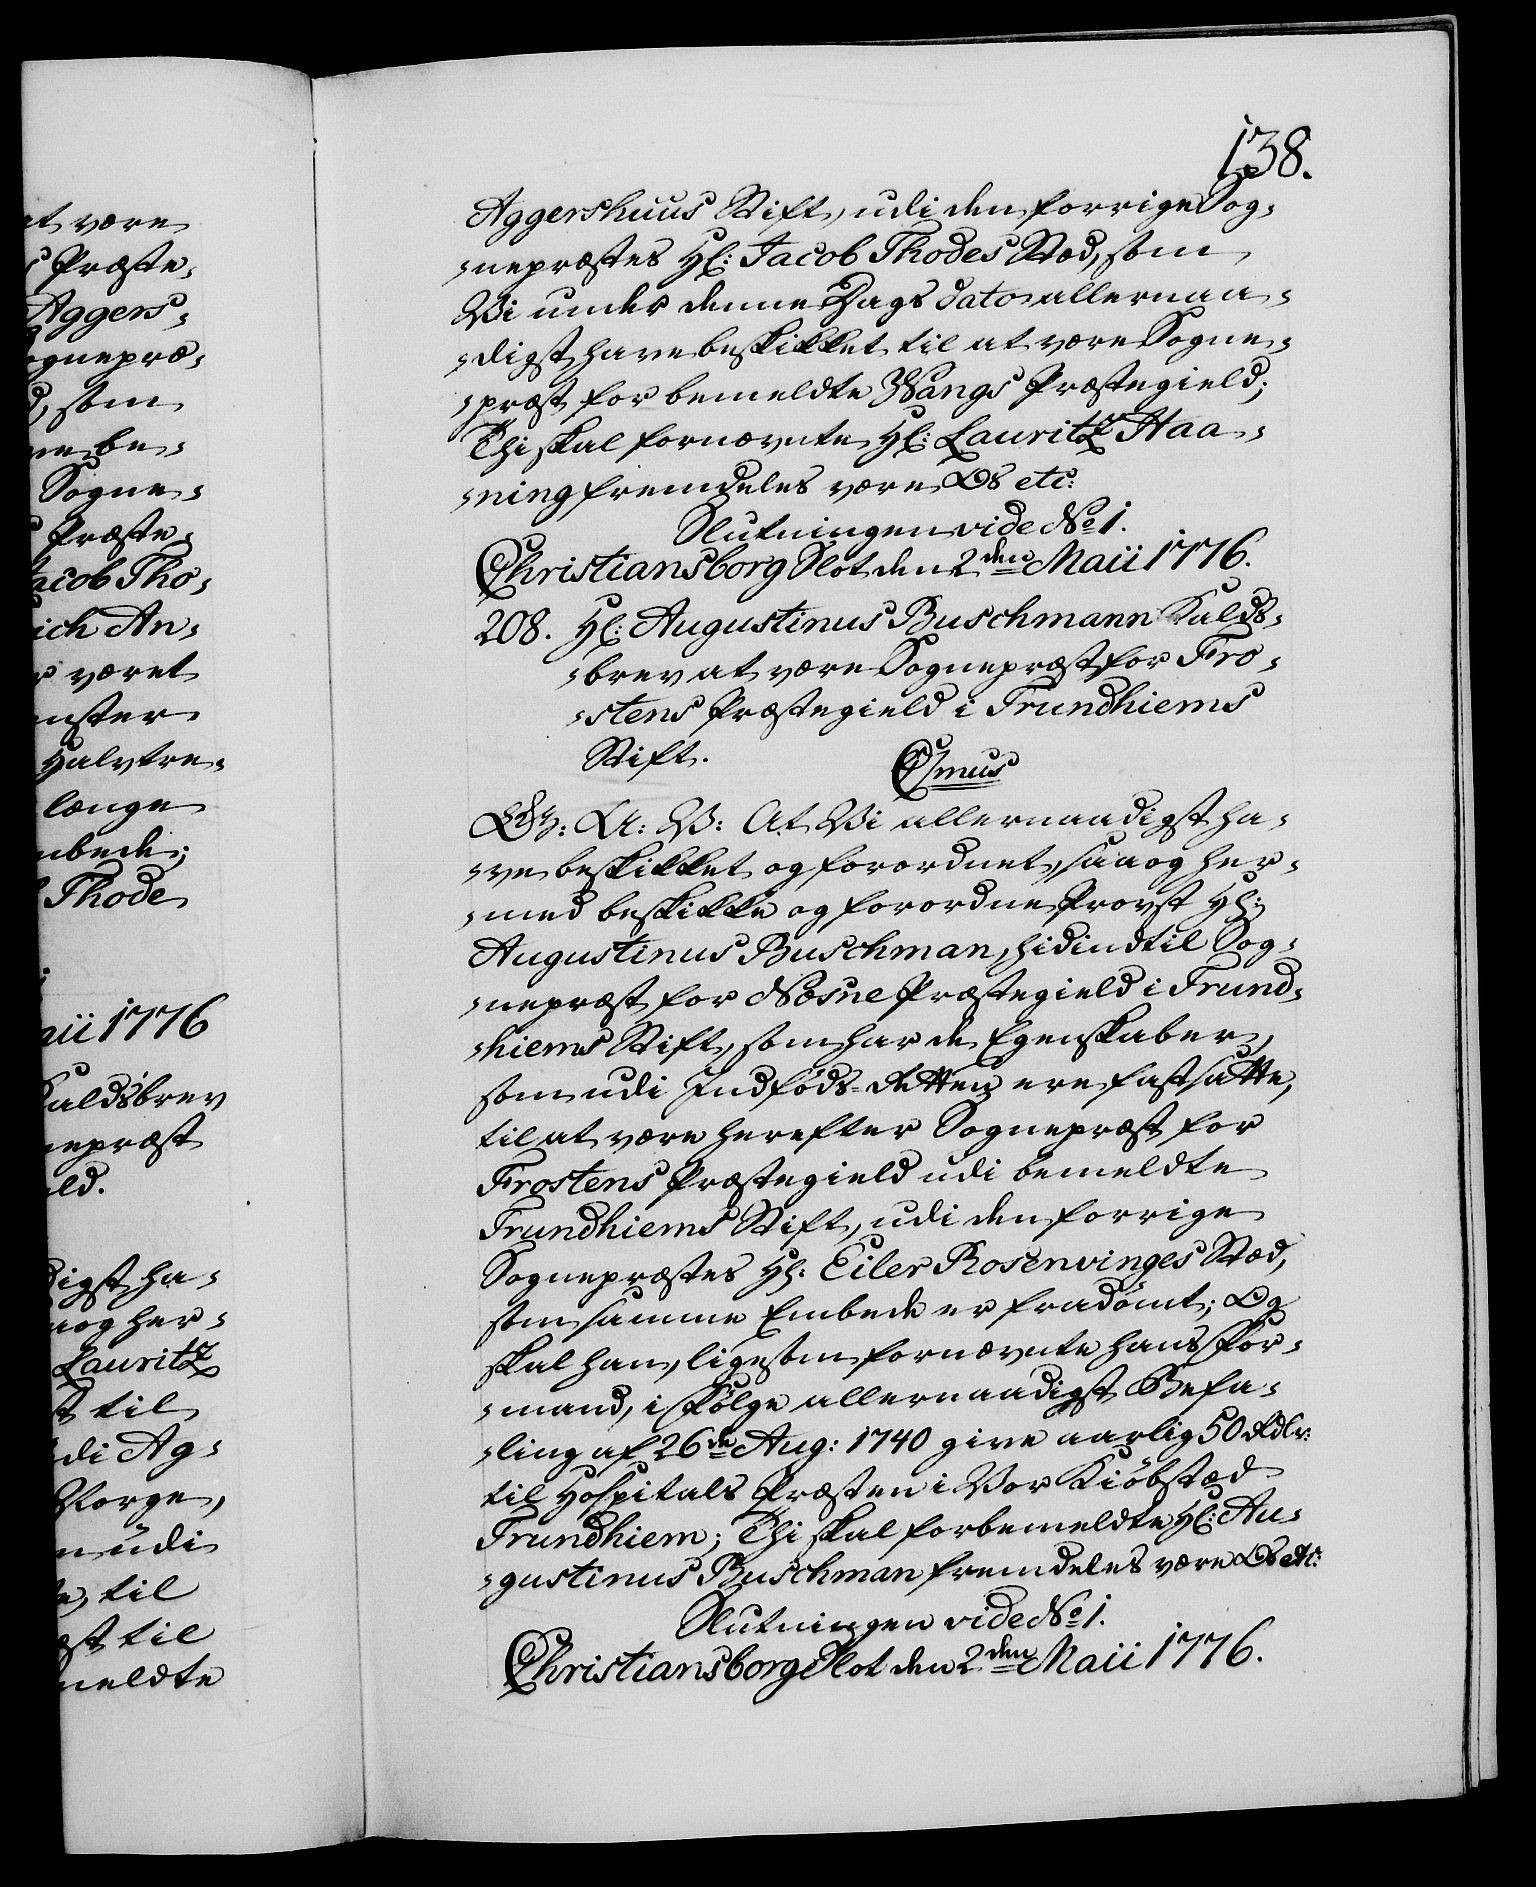 138.
Aggershuus Stift, udi den forrige Sog-
-nepræstes Hr: Jacob Thodes Stæd, som
Vi under denne Dags dato allernaa-
-digst have beskikket til at være Sogne-
-præst for bemeldte Wangs Præstegield;
Thi skal fornævnte Hr: Lauritz Haa-
-ning fremdeles være Os etc:
Slutningen vide No 1.
Christiansborg Slot den 2den Maii 1776.
208. Hr: Augustinus Buschmann Kalds-
-brev at være Sognepræst for Fro-
-stens Præstegield i Trundhiems
Stift.
Csmus
G: A: V: At Vi allernaadigst ha-
-ve beskikket og forordnet, saa og her-
-med beskikke og forordne Provst Hr:
Augustinus Buschman, hidindtil Sog-
-nepræst for Næsne Præstegield i Trund-
-hiems Stift, som har de Egenskaber,
som udi Indføds-Retten ere fastsatte,
til at være herefter Sognepræst for
Frostens Præstegield udi bemeldte
Trundhiems Stift, udi den forrige
Sognepræstes Hr: Eiler Rosenvinges Stæd,
som samme Embede er fradömt; Og
skal han, ligesom fornævnte hans For-
-mand, i Fölge allernaadigst Befa-
-ling af 26de Aug: 1740 give aarlig 50 Rdlr:
til Hospitals Præsten i Vor Kiöbstæd
Trundhiem; Thi skal forbemeldte Hr: Au-
-gustinus Buschman fremdeles være Os etc:
Slutningen vide No 1.
Christiansborg Slot den 2den Maii 1776.
at være
Præste-
Aggers-
ognepræ-
som
ne be-
Sogne-
Præste-
acob Tho-
ich An-
været
nster
Halvtre-
længe
mbede;
Thode
aii 1776
Kaldsbrev
nepræst
ld.
digst ha-
aog her-
Lauritz
til
di Ag-
Norge,
n udi
til
st til
meldte